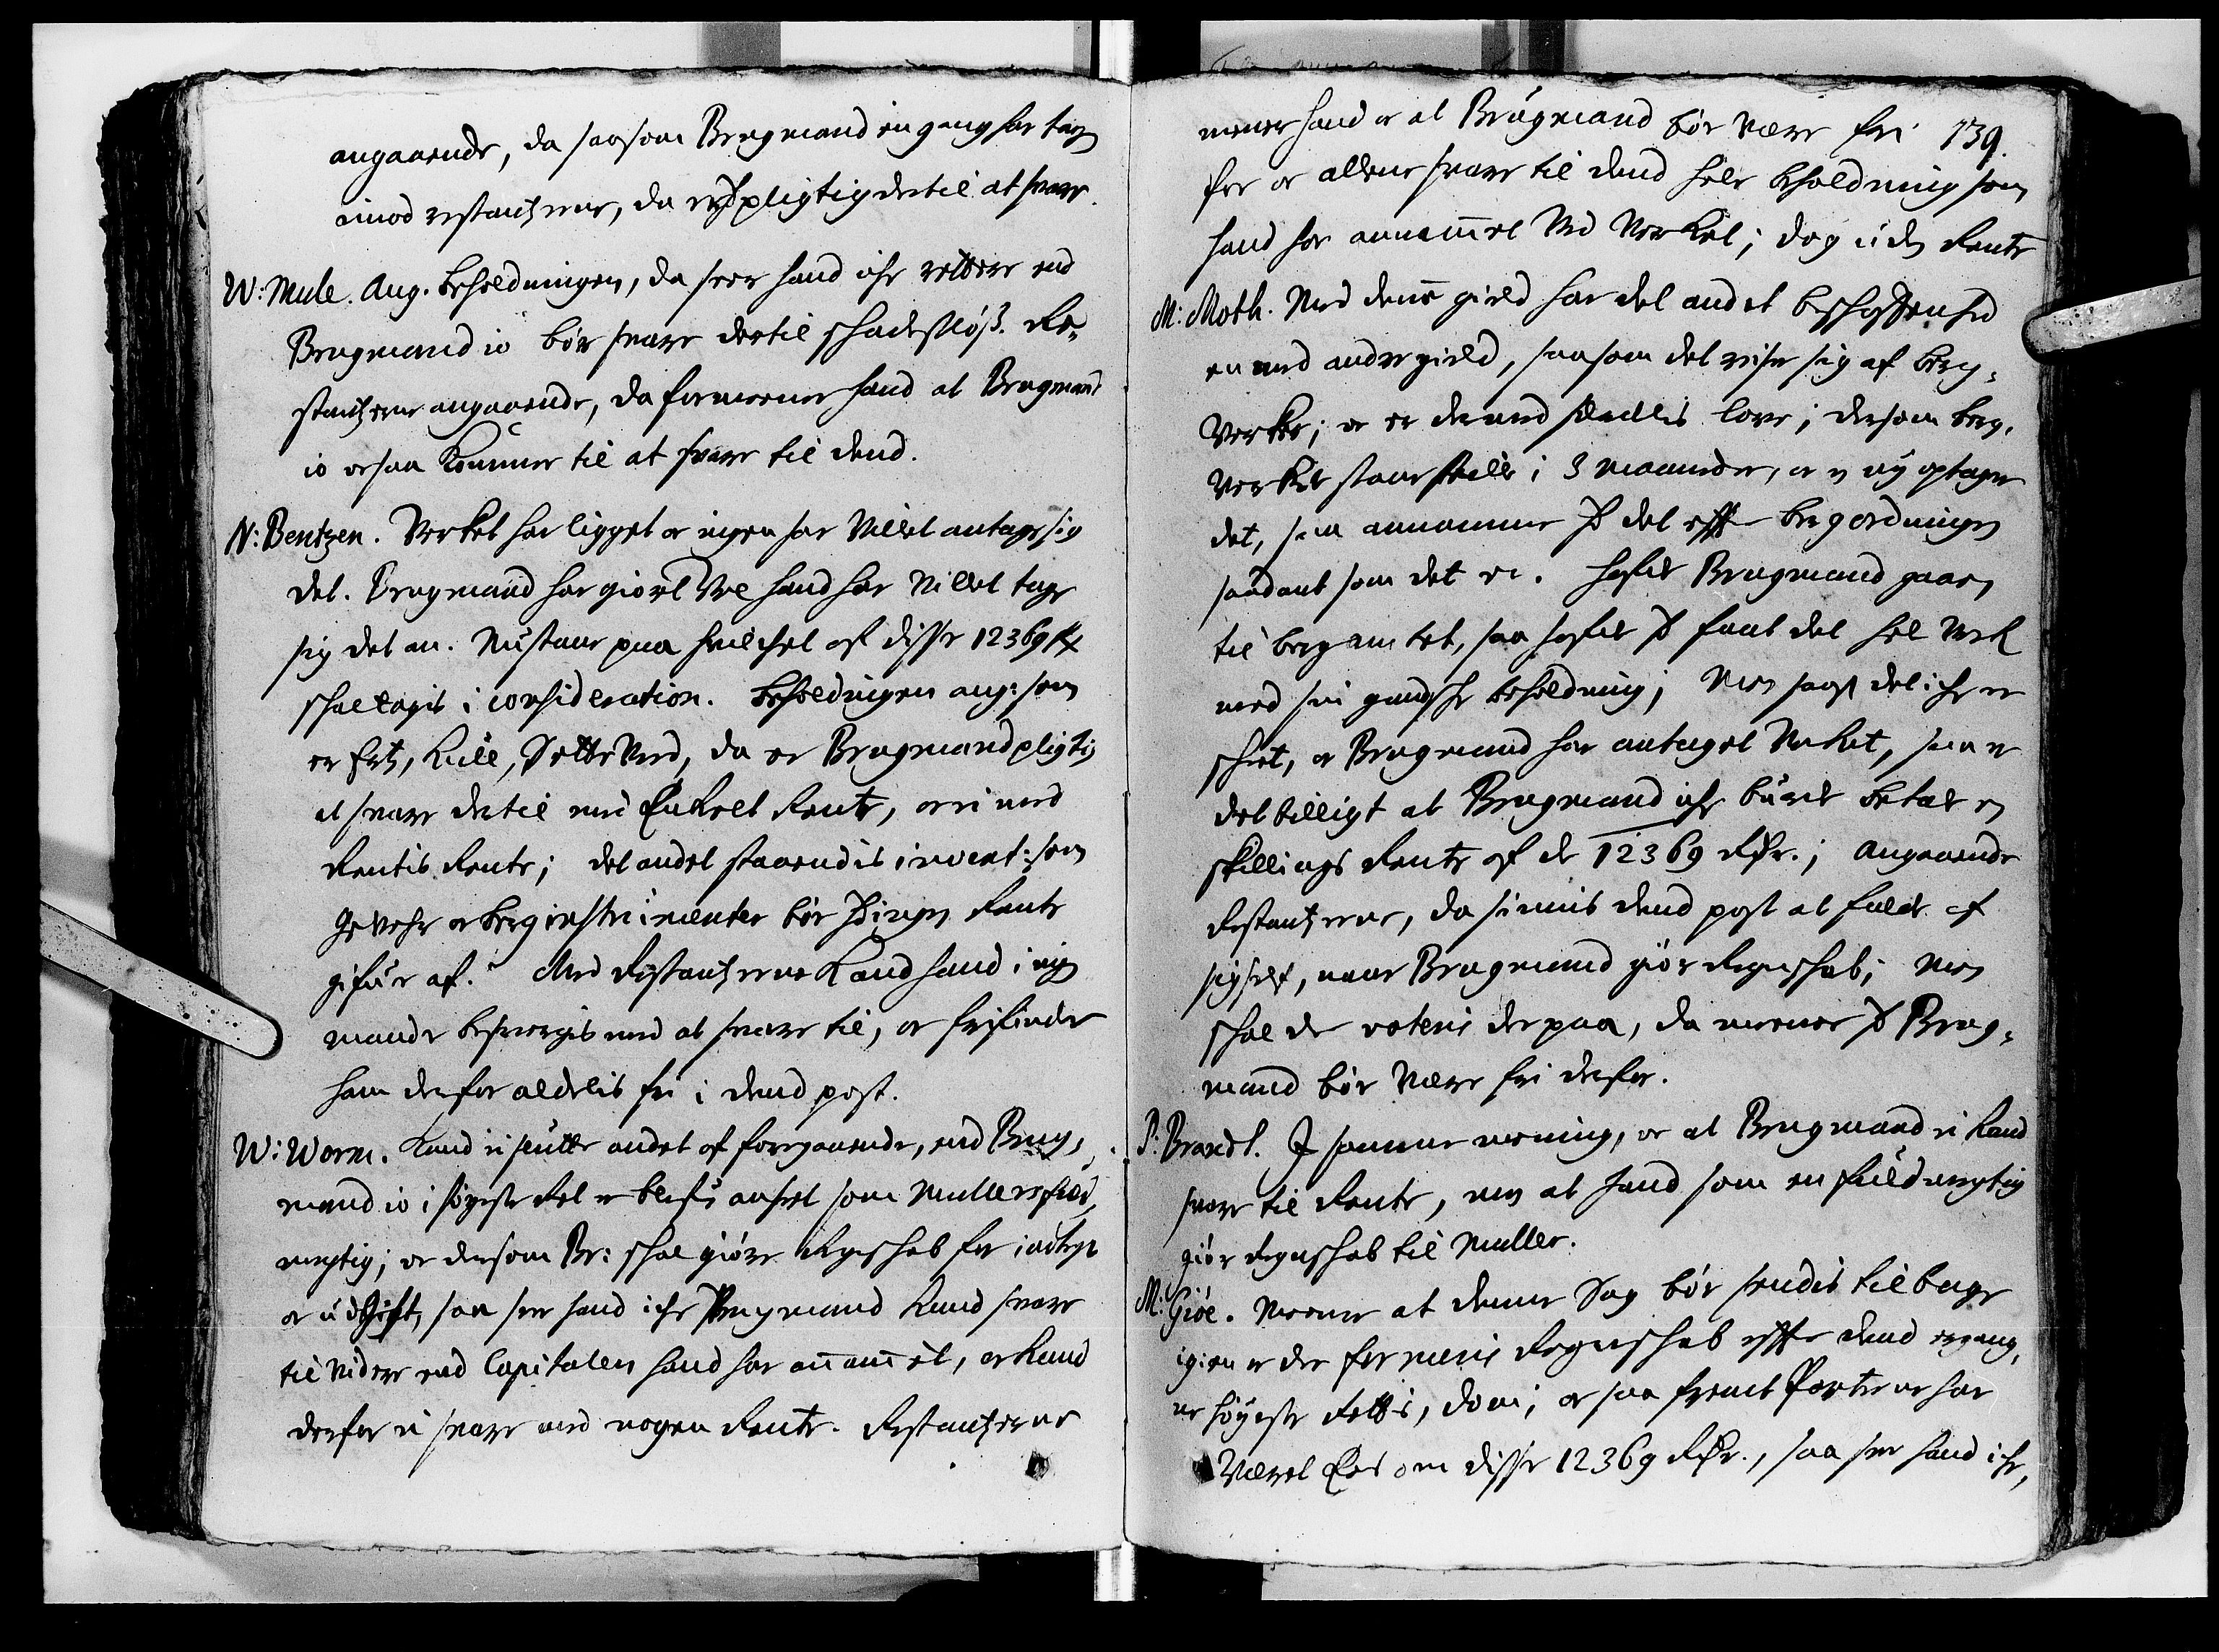 angaaende, da saasom Brugmand en gang har tag
imod restantzerne, da er pligtig dertil at svare.
W: Mule. Ang. beholdningen, da seer hand iche rettere end
Brugmand io bør svare dertil schadesløß. Re-
stantzerne angaaende, da formeener hand at Brugmand
io ocsaa kommer til at svare til dend.
N: Bentzen. Verket har ligget oc ingen har villet antage sig
det. Brugmand har giort vel hand har villet tage
sig det an. Nu staar paa hvilchet af disse 12369 Rd
schal tagis i consideration. Beholdningen ang: som
er Ertz, Kull, Setteved, da er Brugmand pligtig
at svare dertil med Enkelt Rente, oc ei med
Rentis Rente; det andet staaendis invent: som
Gevehr oc berginstrumenter bør ingen Rente
gifues af. Med Restantzerne kand hand i ingen
maade besverges med at svare til, oc frjkiender
ham derfor aldelis fri i dend post.
W: Worm. Kand ei slutte andet af foregaaende, end Brug-
mand io i høyeste Ret er blefu anseet som Mullers fuld-
megtig; oc dersom Br: schal giøre Regnschab for indtegt
oc udgift, saa seer hand iche Brugmand kand svare
til videre end Capitalen hand har annammet, oc kand
derfor ei svare med nogen Rente. Restantzerne
meener hand oc at Brugmand bør være fri 139.
for oc allene svare til dend hele beholdning som
hand har annammet ved Verket; dog uden Rente
M: Moth. Med denne gield har det andet beschaffenhed
en med andre gield, saasom det reiser sig af berg-
verker; oc er dermed særdelis love; dersom berg-
verket staar stille i 3 maaneder, oc en ny optager
det, saa annammer det efter bergordningen
saadant som det er. Hafde Brugmand gaaen
til bergamtet, saa hafde faaet det hele Verk
med sin gandsche beholdning; Men saasom det iche er
scheet, oc Brugmand har antaget Verket, saa er
det billigt at Brugmand iche burde betale en
skillings Rente af de 12369 Rdr.; Angaaende
Restantzerne, da siunis dend post at falde af
sig self, naar Brugmand giør Regnschab; Men
schal der voteris derpaa, da meener Brug-
mand bør være fri derfor.
P: Brandt. I samme meening, oc at Brugmand ei kand
svare til Rente, men at hand som en fuldmegtig
giør Regnschab til Muller.
M: Giöe. Meener at denne Sag bør sendis tilbage
igien oc der formeris Regnschab efter dend ergang-
ne høyeste Rettis, dom; oc saa fremt Parterne har
veret Ens om disse 12369 Rdr., saa seer hand iche,